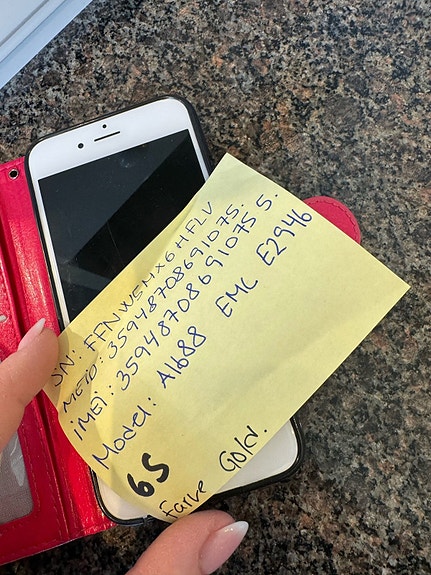 SN: FFNW5MX6HFLV
MEID: 35948708691075.
iMEi: 359487086910755.
Model: A1688 EMC E2946
6S
Farve Gold.